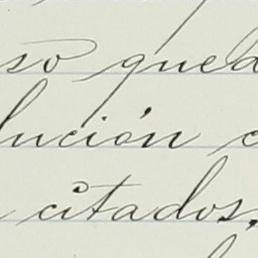 so qued
lución c
citados,